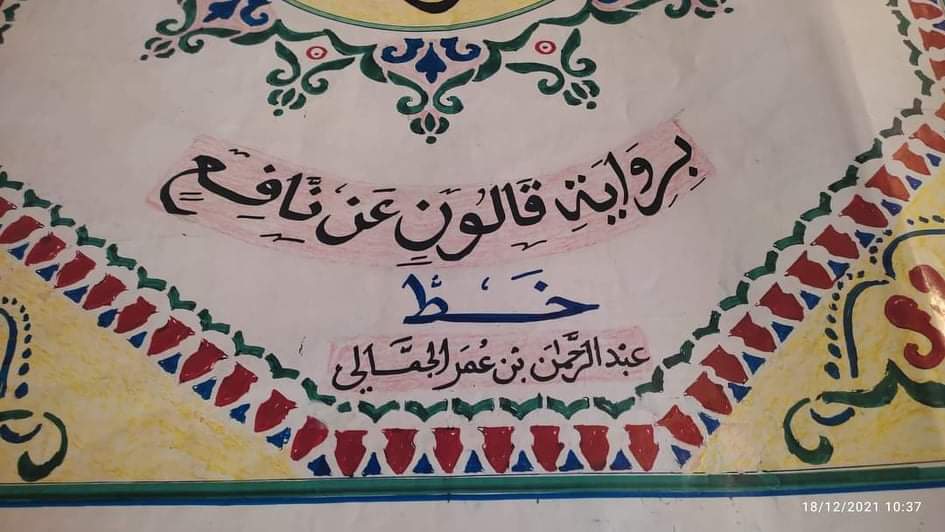 بِرِوَايَةِ قَالُونِ عَن نَّافِعٍ
خَطّ
عبد الرَّحمٰن بن عُمَر
18/12/2021 10:37